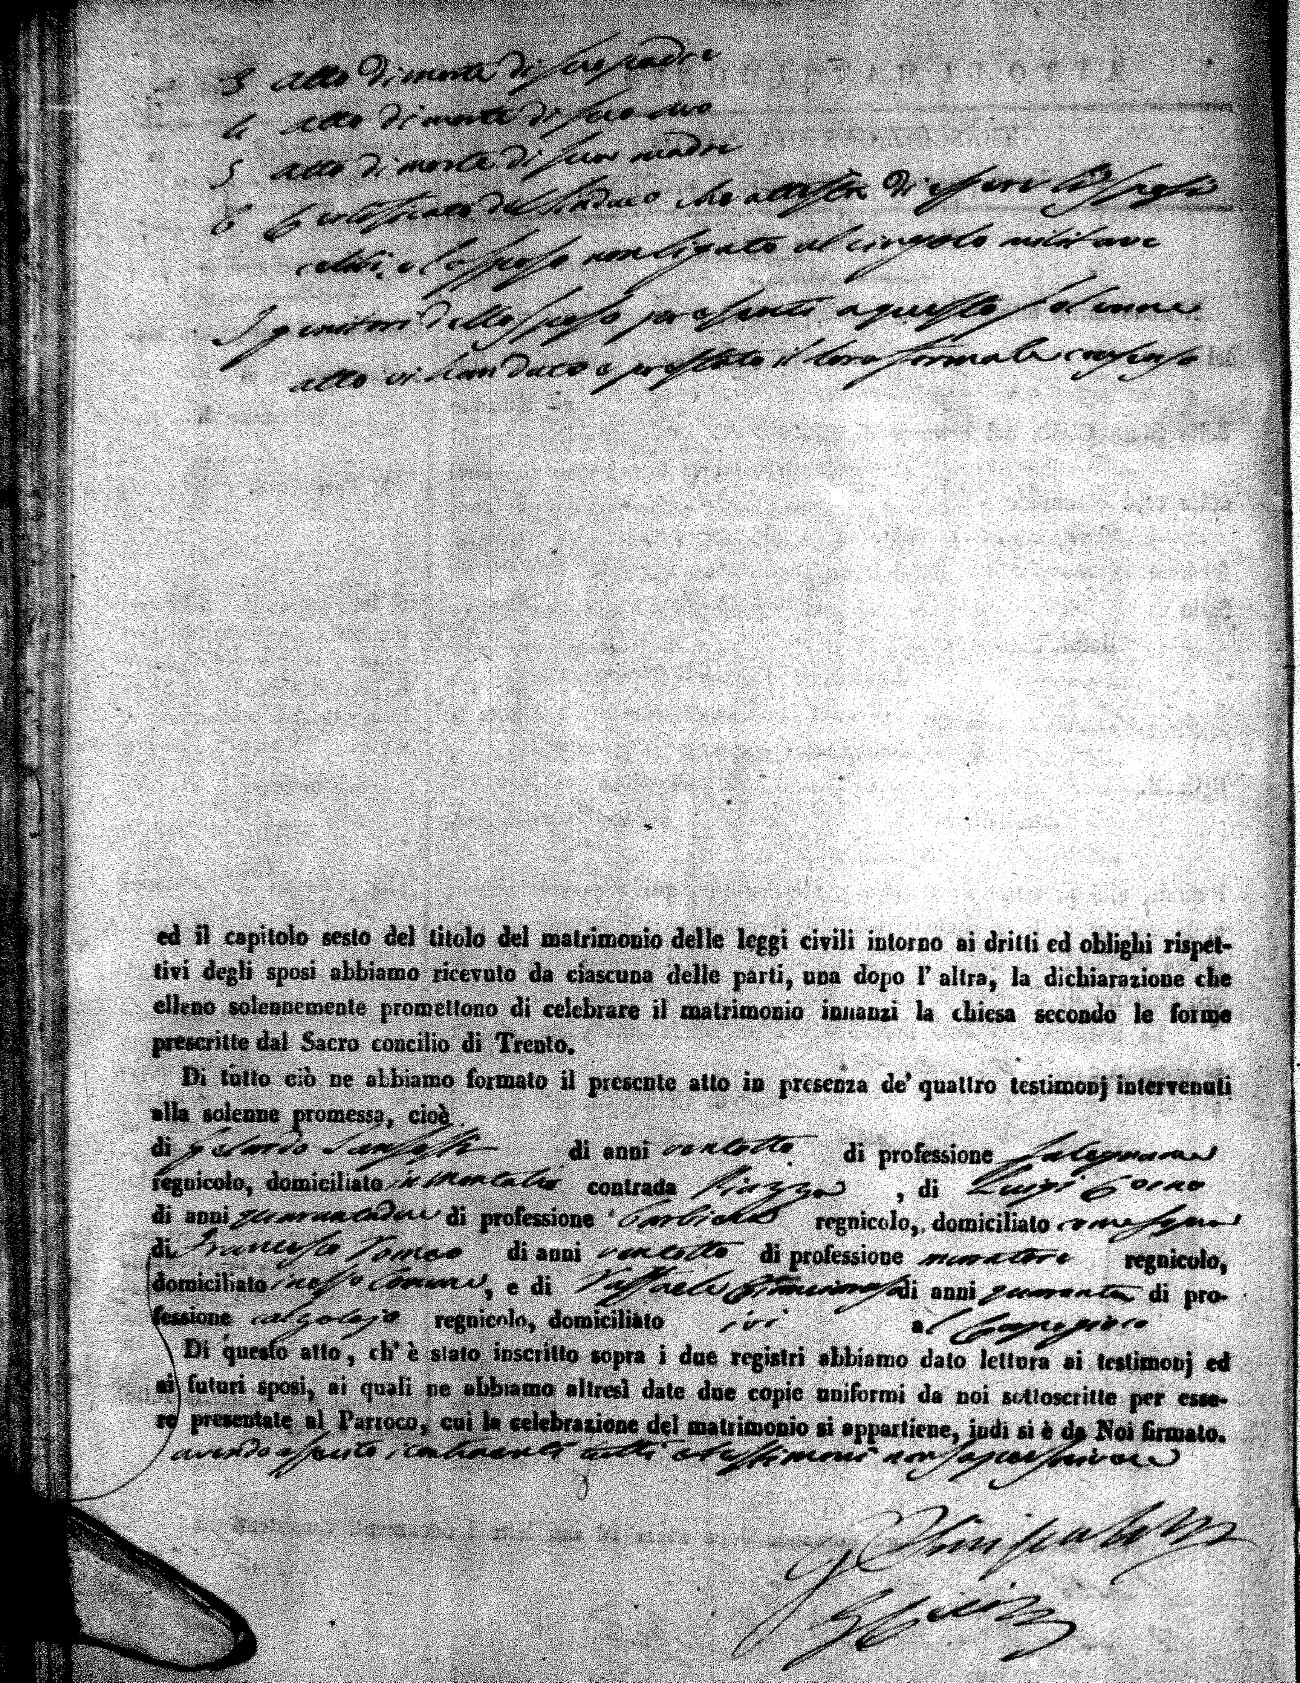 3 atto di morte di suo padre
4 atto di morte di suo avo
5 atto di morte di sua madre
6 Certificato del Sindaco che attesta di essere gli sposi
celibi, e lo sposo non ligato al cingolo militare
I genitori dello sposo presenti a questo solenne
atto vi han dato e prestato il loro formale consenso
ed il capitolo sesto del titolo del matrimonio delle leggi civili intorno ai dritti ed oblighi rispet-
tivi degli sposi abbiamo ricevuto da ciascuna delle parti, una dopo l' altra, la dichiarazione che
elleno solennemente promettono di celebrare il matrimonio innanzi la chiesa secondo le forme
prescritte dal Sacro concilio di Trento.
Di tutto ciò ne abbiamo formato il presente atto in presenza de' quattro testimonj intervenuti
alla solenne promessa, cioè
di Gerardo di anni ventotto di professione falegname
regnicolo, domiciliato in contrada Piazza , di Luigi
di anni quarantadue di professione regnicolo, domiciliato come sopra
di Francesco Tomeo di anni ventotto di professione muratore regnicolo,
domiciliato in esso Comune, e di Raffaele di anni quaranta di pro-
fessione calzolajo regnicolo, domiciliato ivi al
Di questo atto, ch' è stato inscritto sopra i due registri abbiamo dato lettura ai testimonj ed
ai futuri sposi, ai quali ne abbiamo altresì date due copie uniformi da noi sottoscritte per esse-
re presentate al Parroco, cui la celebrazione del matrimonio si appartiene, indi si è da Noi firmato.
avendo asserito i contraenti tutti e testimoni non saper scrivere